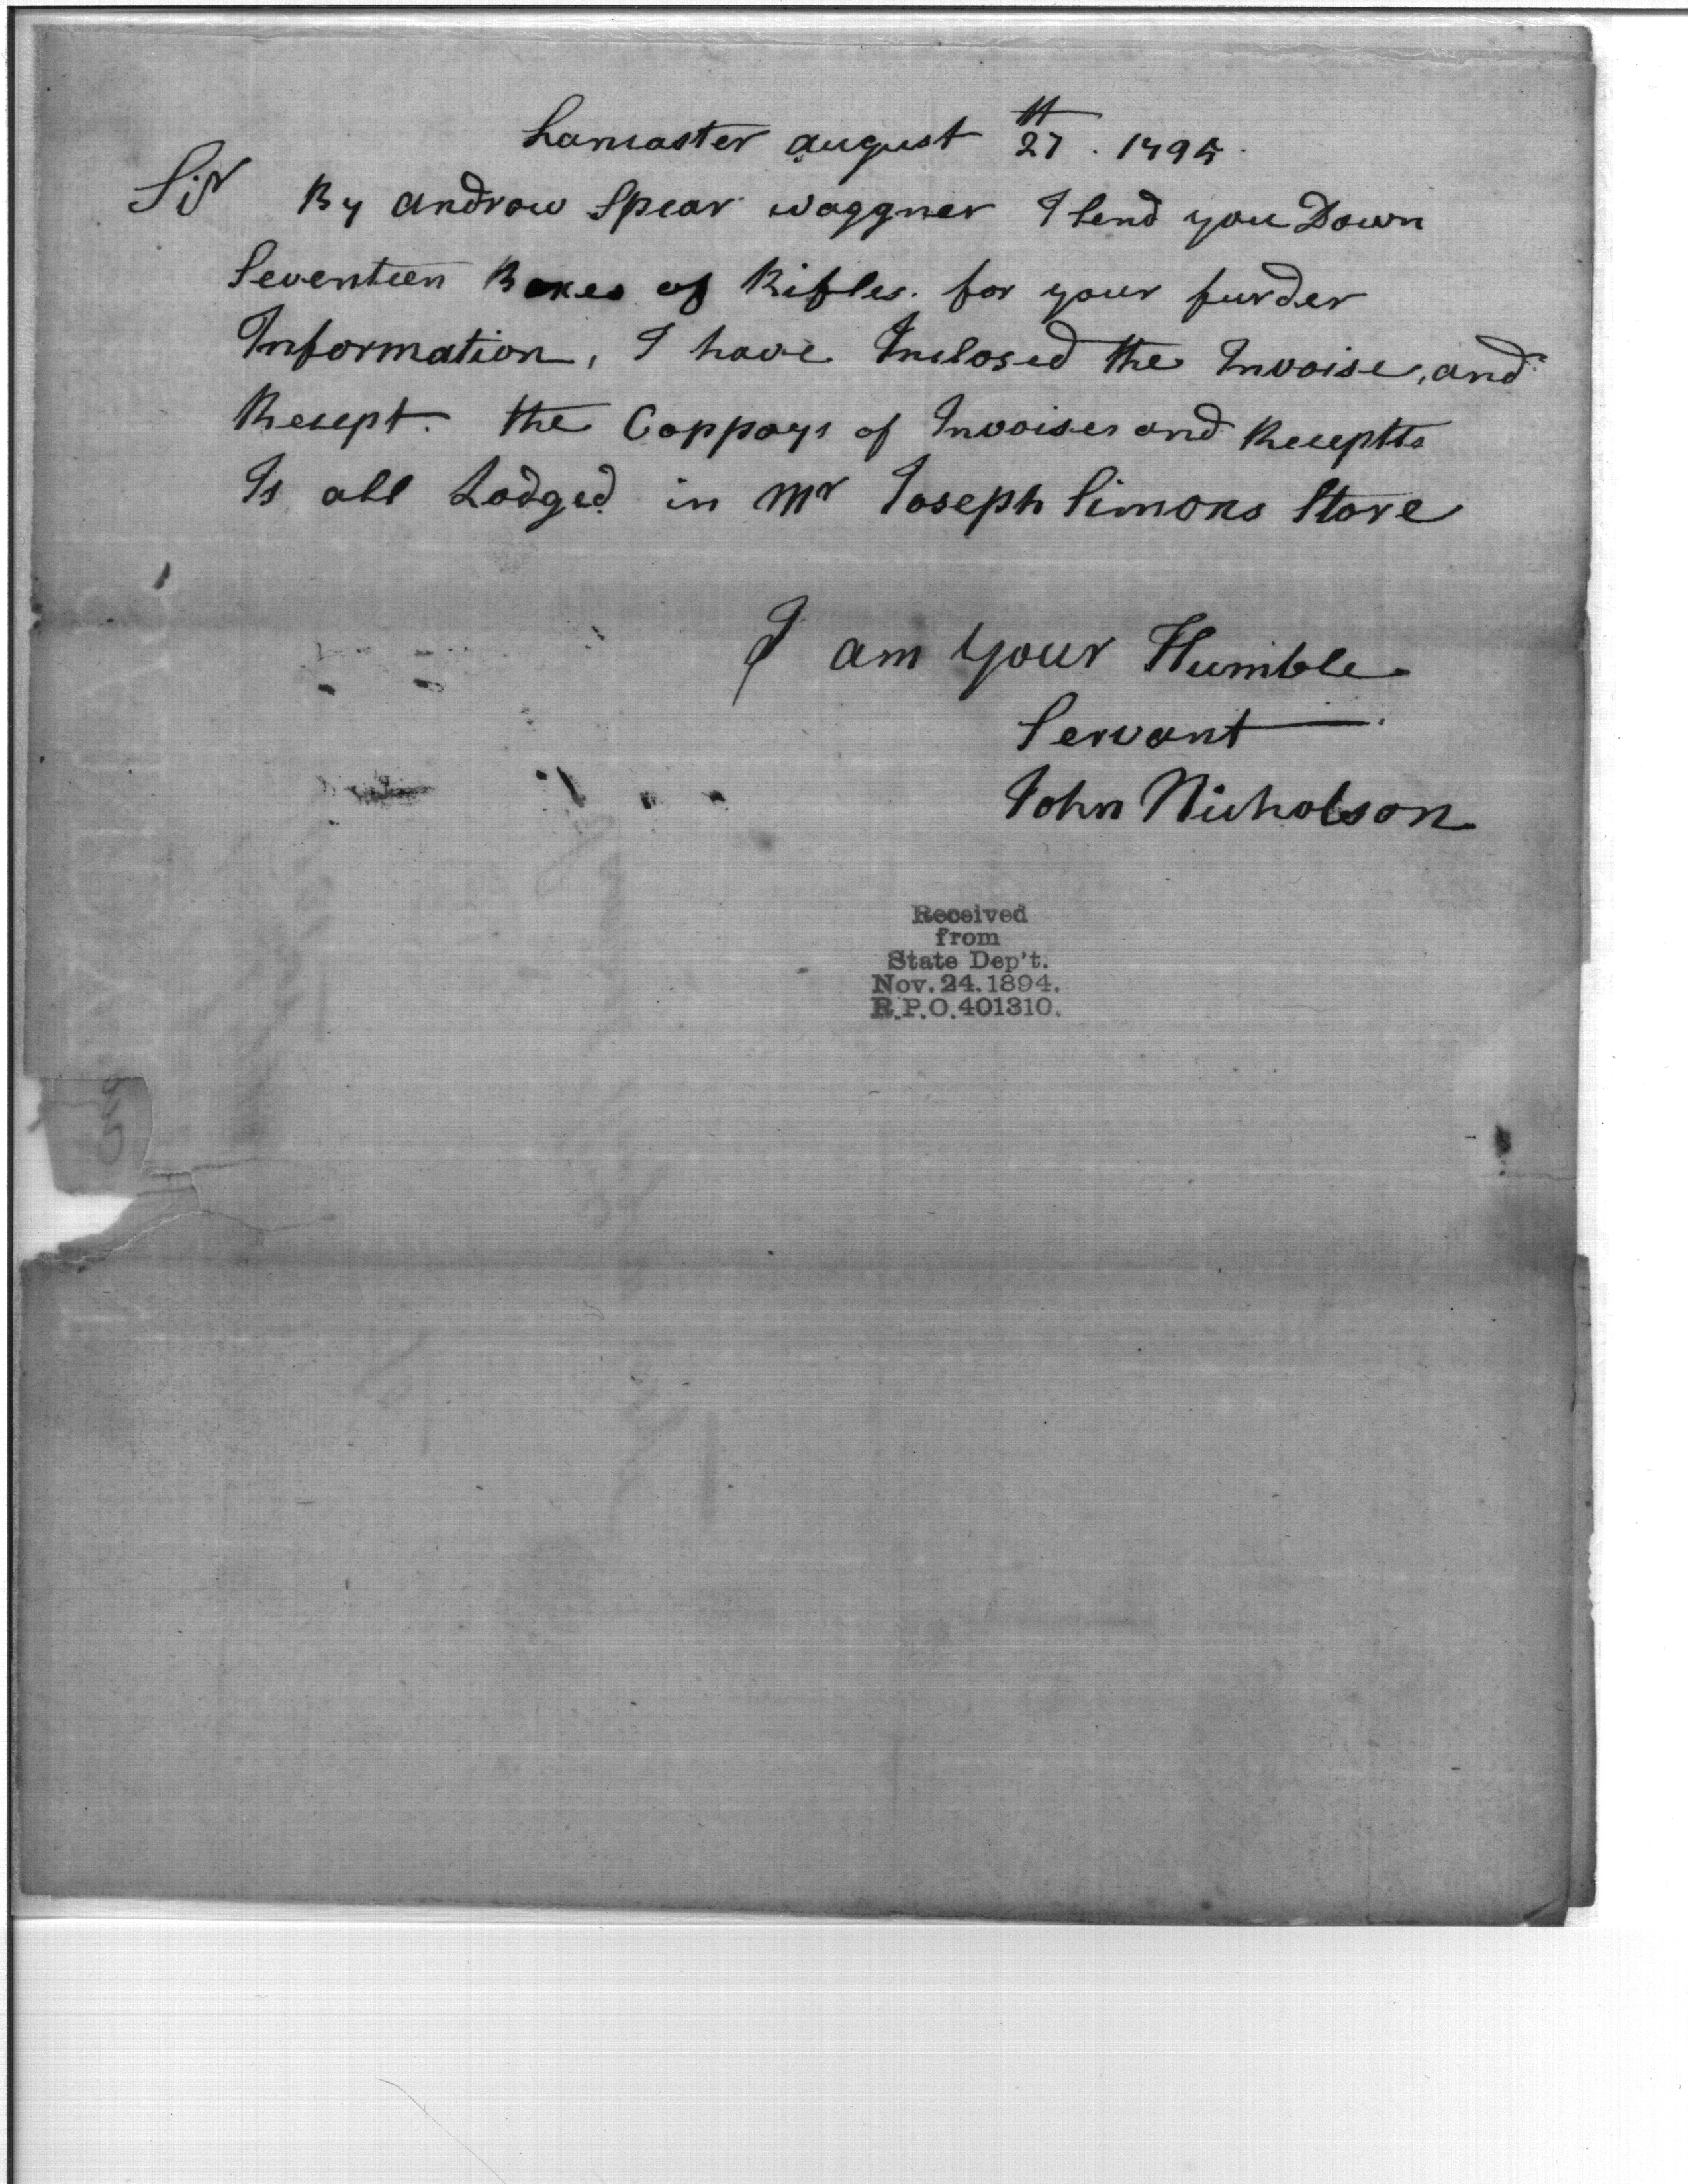 Lancaster august 27th. 1795.
Sir By Androw Spear waggner I Send you Down
Seventeen Boxes of Rifles. for your furder
Information, I have Inclosed the Invoise, and
Resept. the Coppays of Invoises and Reseptts
Is all Lodged in Mr Joseph Simons Store
I am your Humble
Servant
John Nicholson
Received
from
State Dep't.
Nov. 24. 1894.
R.P.O. 401310.